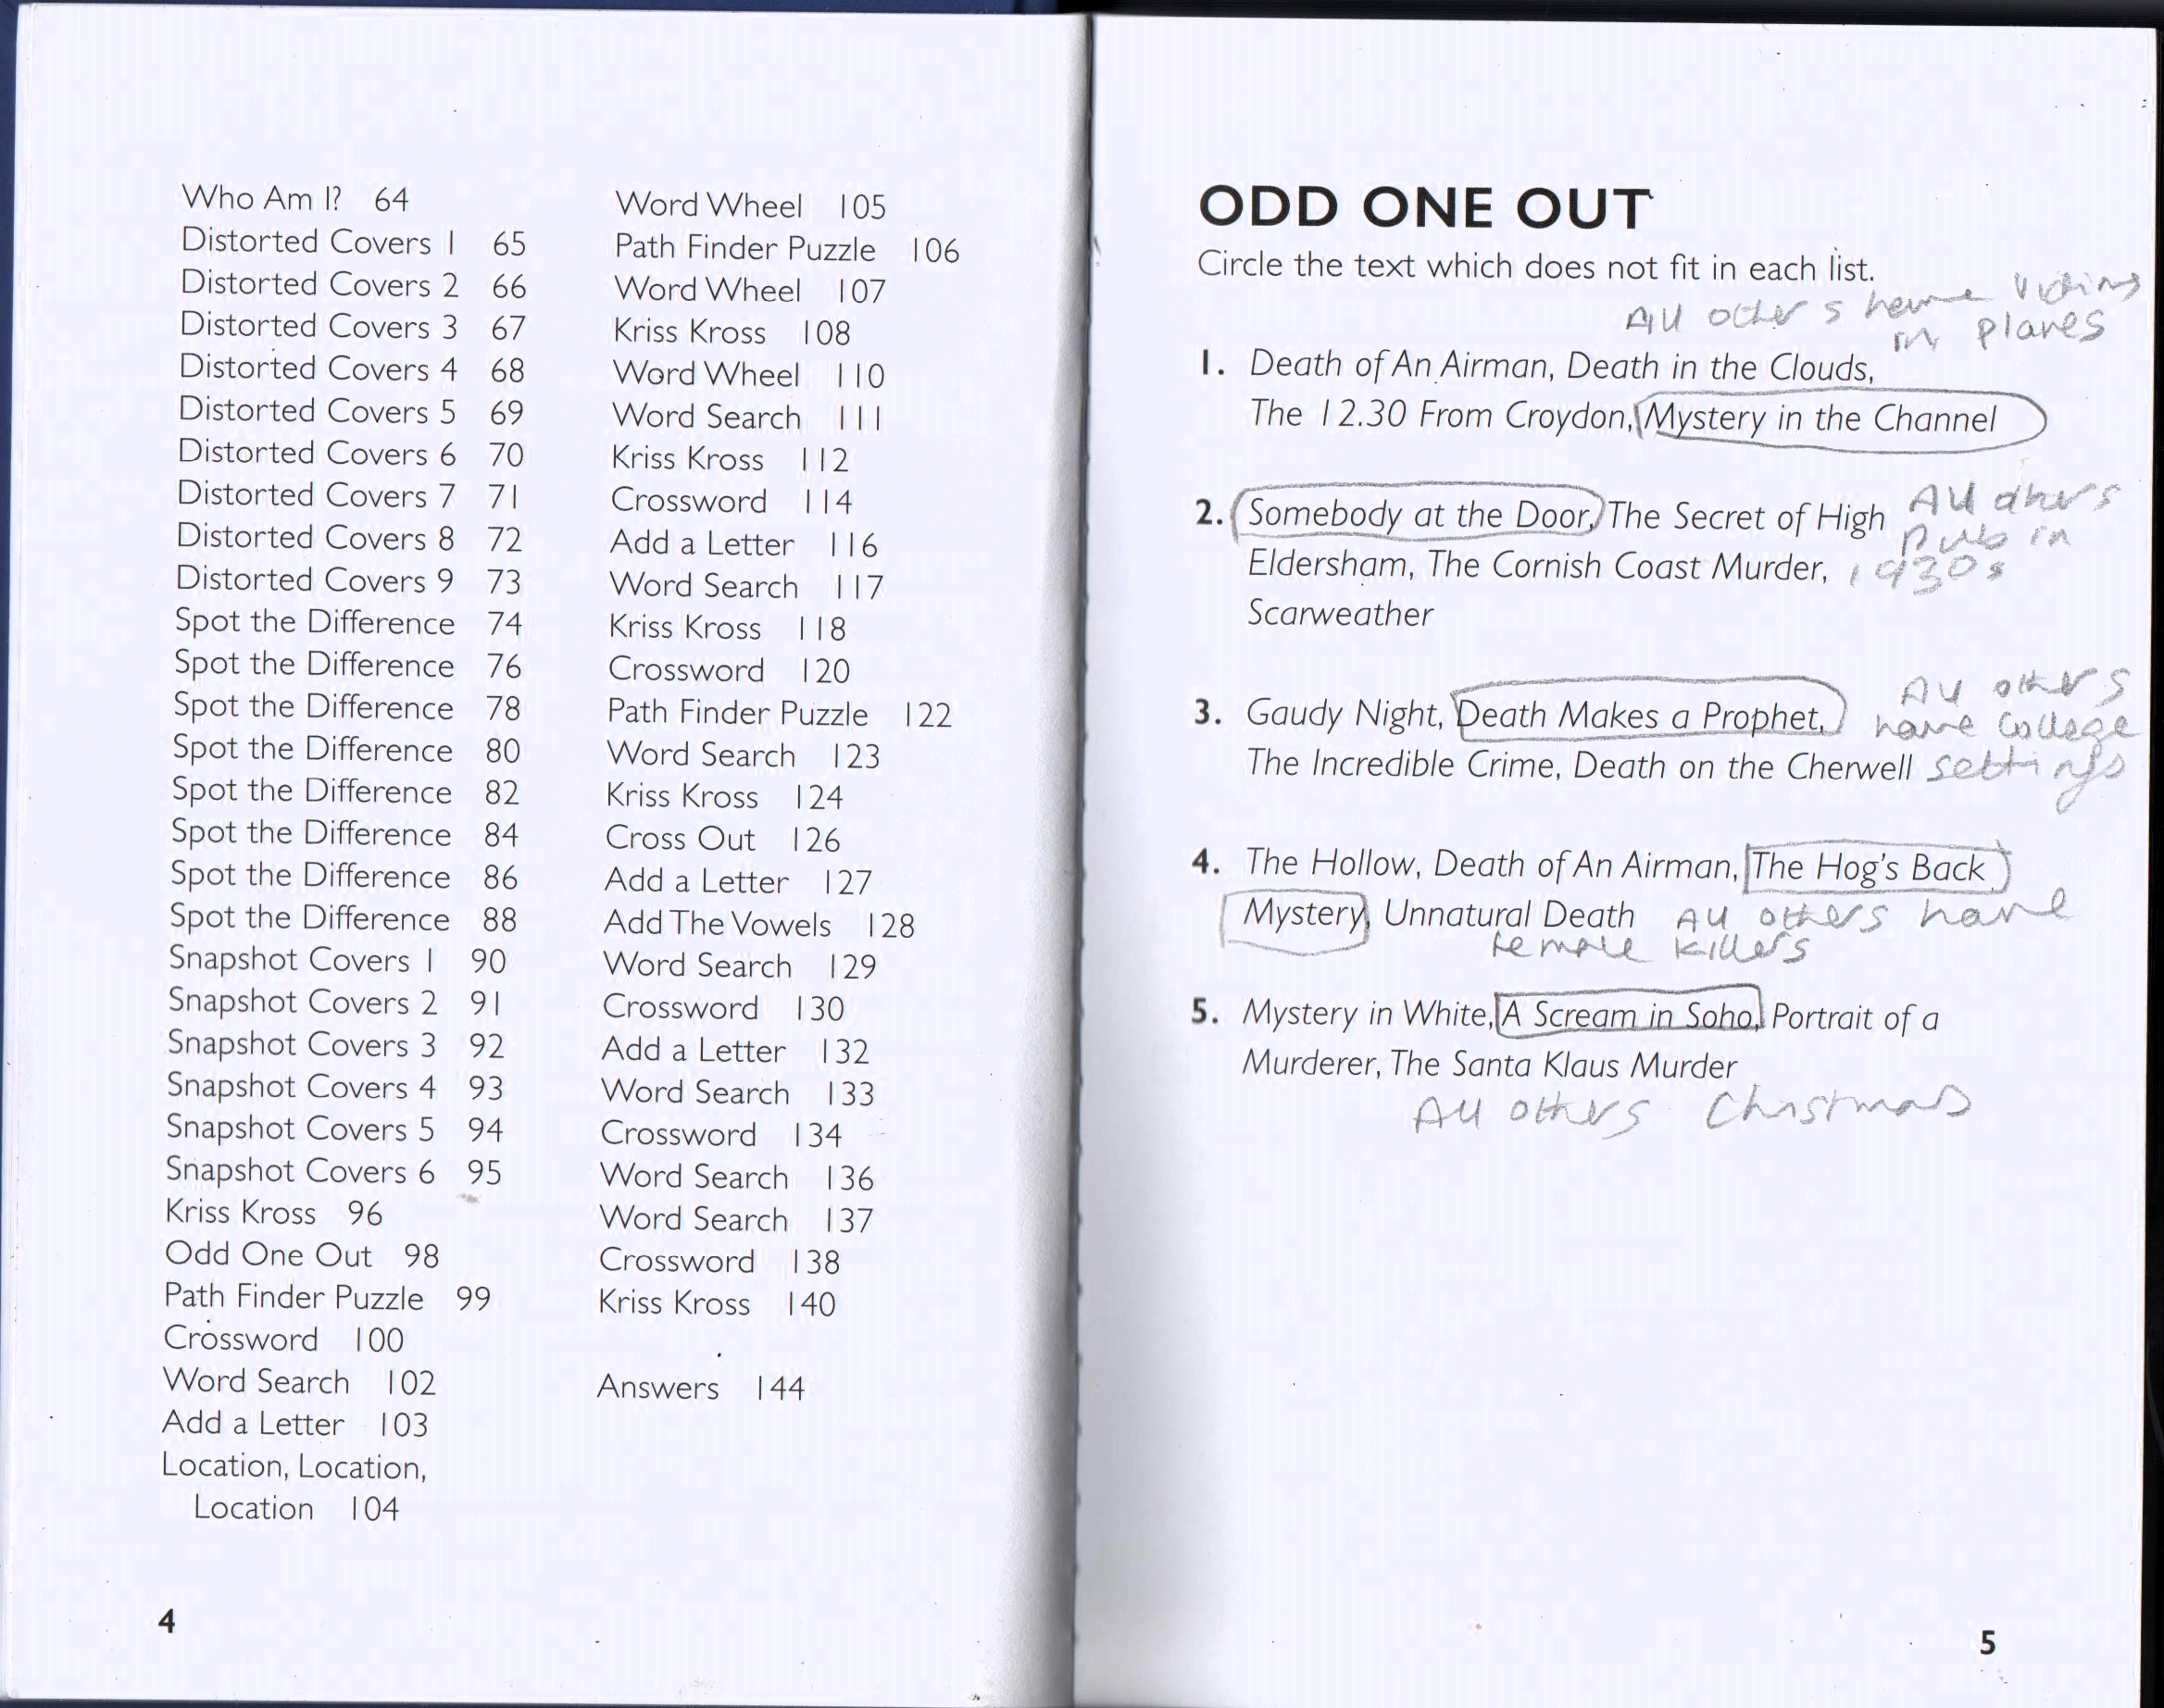 Who Am I? 64
Distorted Covers 1 65
Distorted Covers 2 66
Distorted Covers 3 67
Distorted Covers 4 68
Distorted Covers 5 69
Distorted Covers 6 70
Distorted Covers 7 71
Distorted Covers 8 72
Distorted Covers 9 73
Spot the Difference 74
Spot the Difference 76
Spot the Difference 78
Spot the Difference 80
Spot the Difference 82
Spot the Difference 84
Spot the Difference 86
Spot the Difference 88
Snapshot Covers 1 90
Snapshot Covers 2 91
Snapshot Covers 3 92
Snapshot Covers 4 93
Snapshot Covers 5 94
Snapshot Covers 6 95
Kriss Kross 96
Odd One Out 98
Path Finder Puzzle 99
Crossword 100
Word Search 102
Add a Letter 103
Location, Location,
Location 104
Word Wheel 105
Path Finder Puzzle 106
Word Wheel 107
Kriss Kross 108
Word Wheel 110
Word Search 111
Kriss Kross 112
Crossword 114
Add a Letter 116
Word Search 117
Kriss Kross 118
Crossword 120
Path Finder Puzzle 122
Word Search 123
Kriss Kross 124
Cross Out 126
Add a Letter 127
Add The Vowels 128
Word Search 129
Crossword 130
Add a Letter 132
Word Search 133
Crossword 134
Word Search 136
Word Search 137
Crossword 138
Kriss Kross 140
Answers 144
4
ODD ONE OUT
Circle the text which does not fit in each list.
All others have victims
in planes
1. Death of An Airman, Death in the Clouds,
The 12.30 From Croydon, Mystery in the Channel
2. Somebody at the Door, The Secret of High
All others
Pubs in
Eldersham, The Cornish Coast Murder,
1930s
Scarweather
All others
3. Gaudy Night, Death Makes a Prophet,
have College
The Incredible Crime, Death on the Cherwell
settings
4. The Hollow, Death of An Airman, The Hog's Back
Mystery, Unnatural Death
All others have
female killers
5. Mystery in White, A Scream in Soho, Portrait of a
Murderer, The Santa Klaus Murder
All others Christmas
5